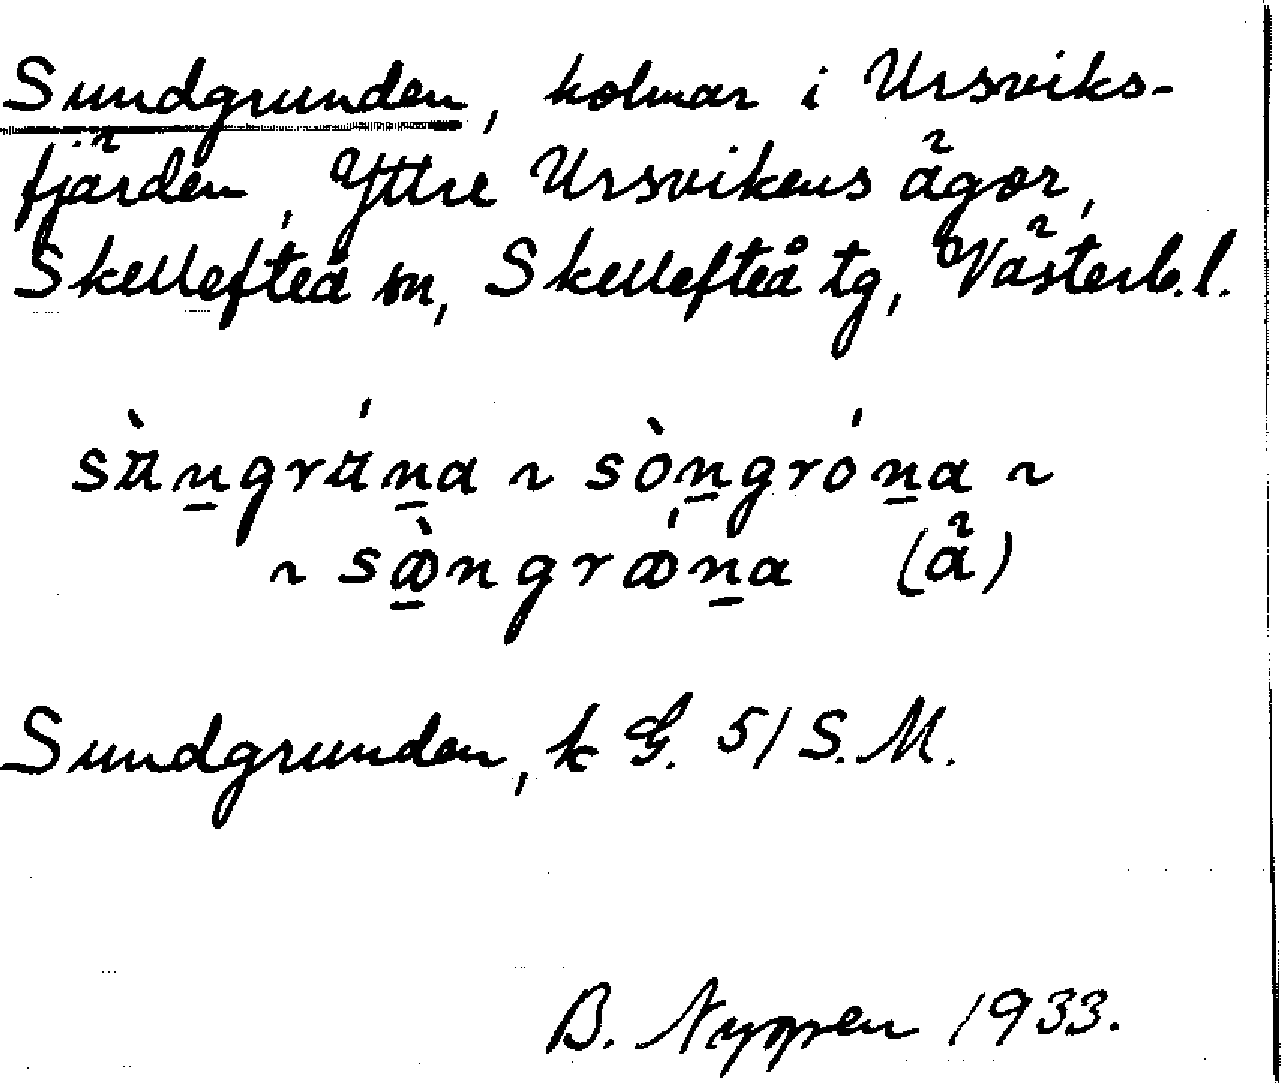 Sundgrunden, holmar i Ursviks-
fjärden, Yttre Ursvikens ägor,
Skellefteå sn, Skellefteå tg, Västerb.l.
sὰn̲grán̲a ~ sòn̲grón̲a ~
~ sæ̲̀ngrǽn̲a (ä)
Sundgrunden, k G. 51 S.M.
B. Nyman 1933.